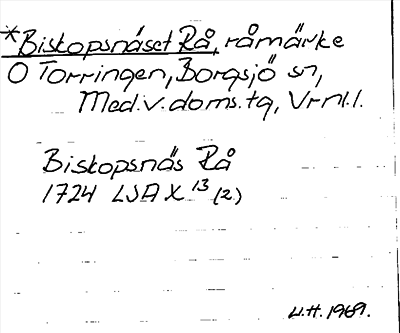 *Biskopsnäset Rå, råmärke
O Torringen, Borgsjö sn,
Med.v.doms.tg, Vrnl.l.
Biskopsnäs Rå
1724 LSA X 13 (2)
U.H. 1969.